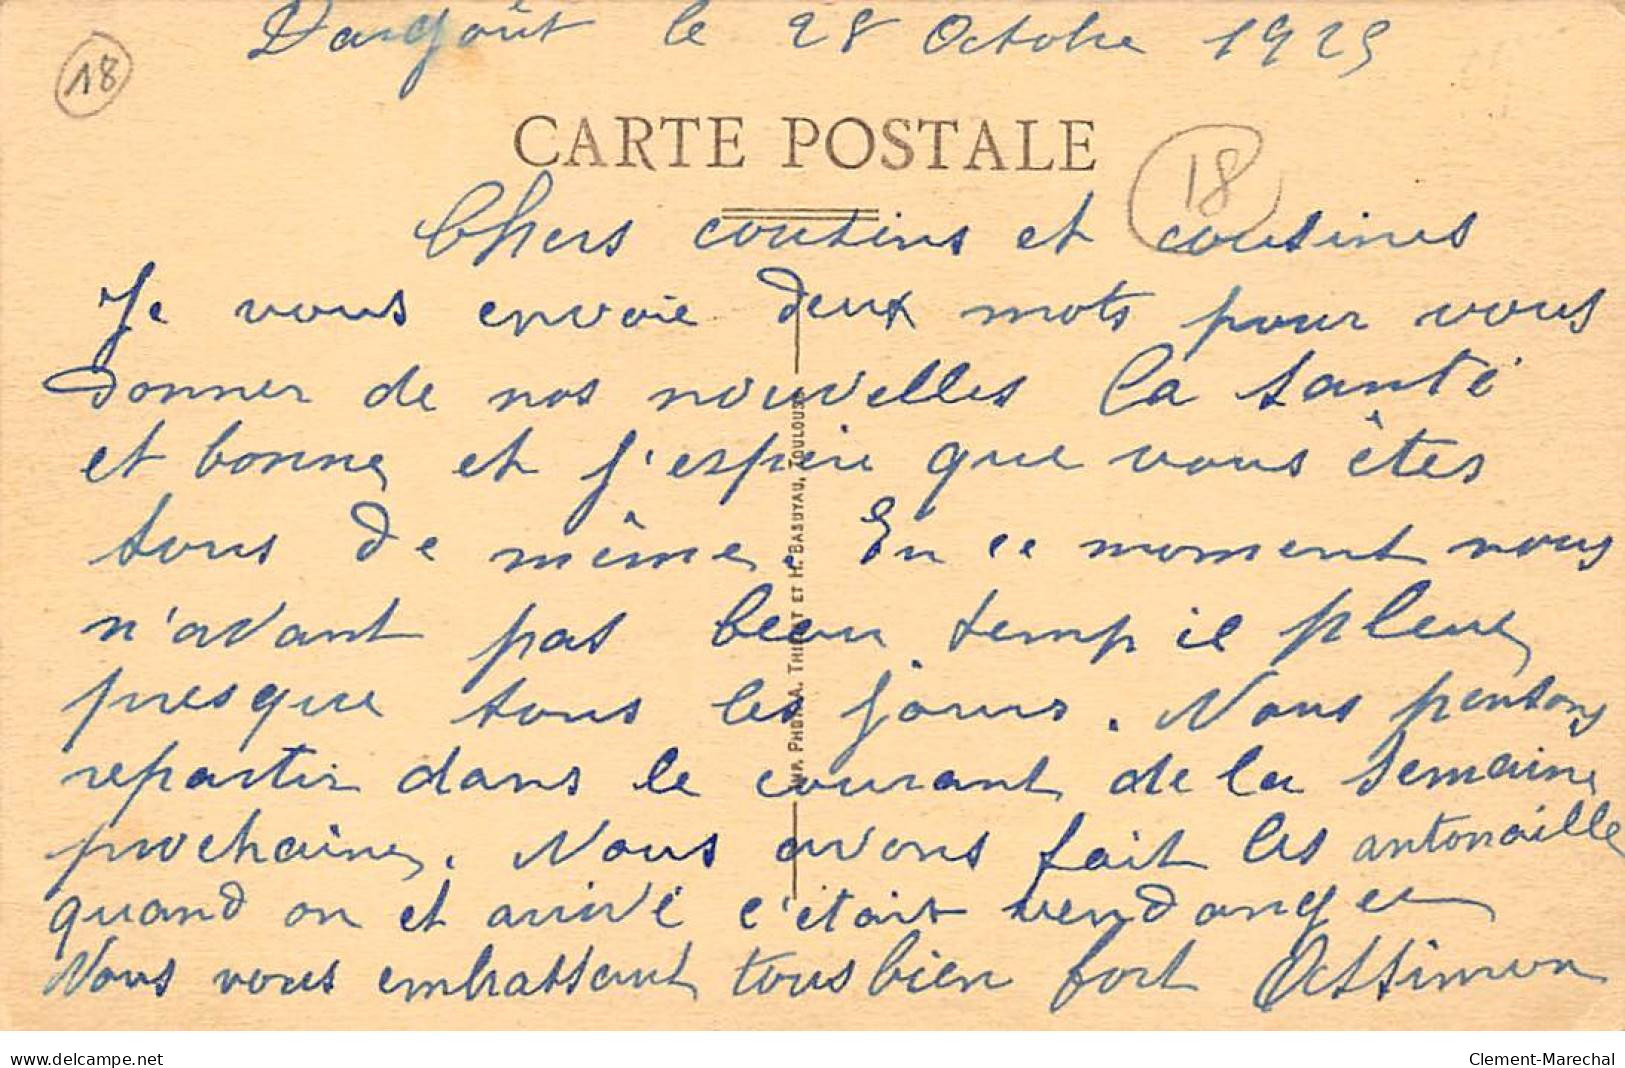 Dargoût le 28 Octobre 1925
18
CARTE POSTALE
18
Chers cousins et cousines
Je vous envoie deux mots pour vous
donner de nos nouvelles la santé
et bonne et j'espère que vous êtes
tous de même. En ce moment nous
n'avant pas beau temp il pleut
presque tous les jours. Nous pensons
repartir dans le courant de la semaine
prochaine. Nous avons fait les antonaille
quand on et arrivé c'était vendanger
Nous vous embrassant tous bien fort
PHOTOTYPIE A. THIRIAT ET H. BASUYAU, TOULOUSE
www.delcampe.net
Clement-Marechal